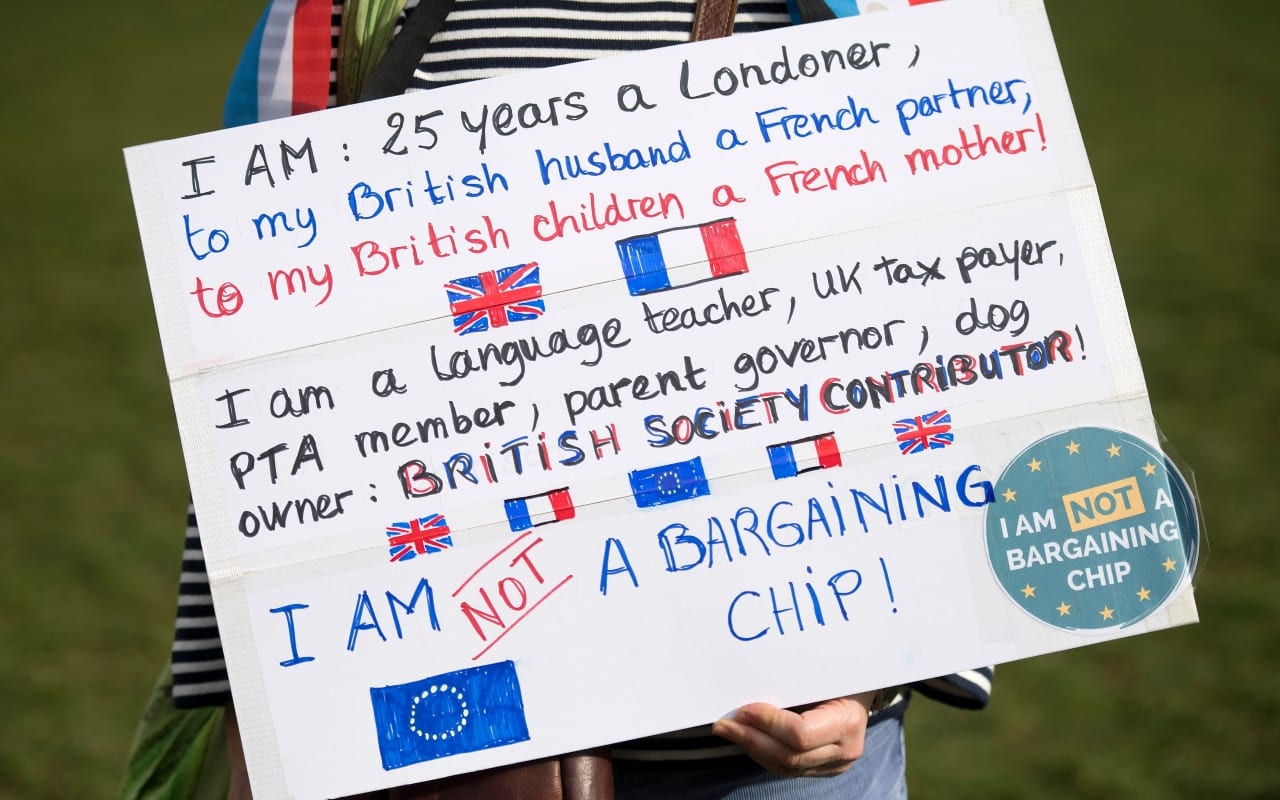 I AM: 25 years a Londoner,
to my British husband a French partner,
to my British children a French mother!
I am a language teacher, UK tax payer,
PTA member, parent governor, dog
owner: BRITISH SOCIETY CONTRIBUTOR!
I AM NOT A BARGAINING
CHIP!
I AM NOT A
BARGAINING
CHIP